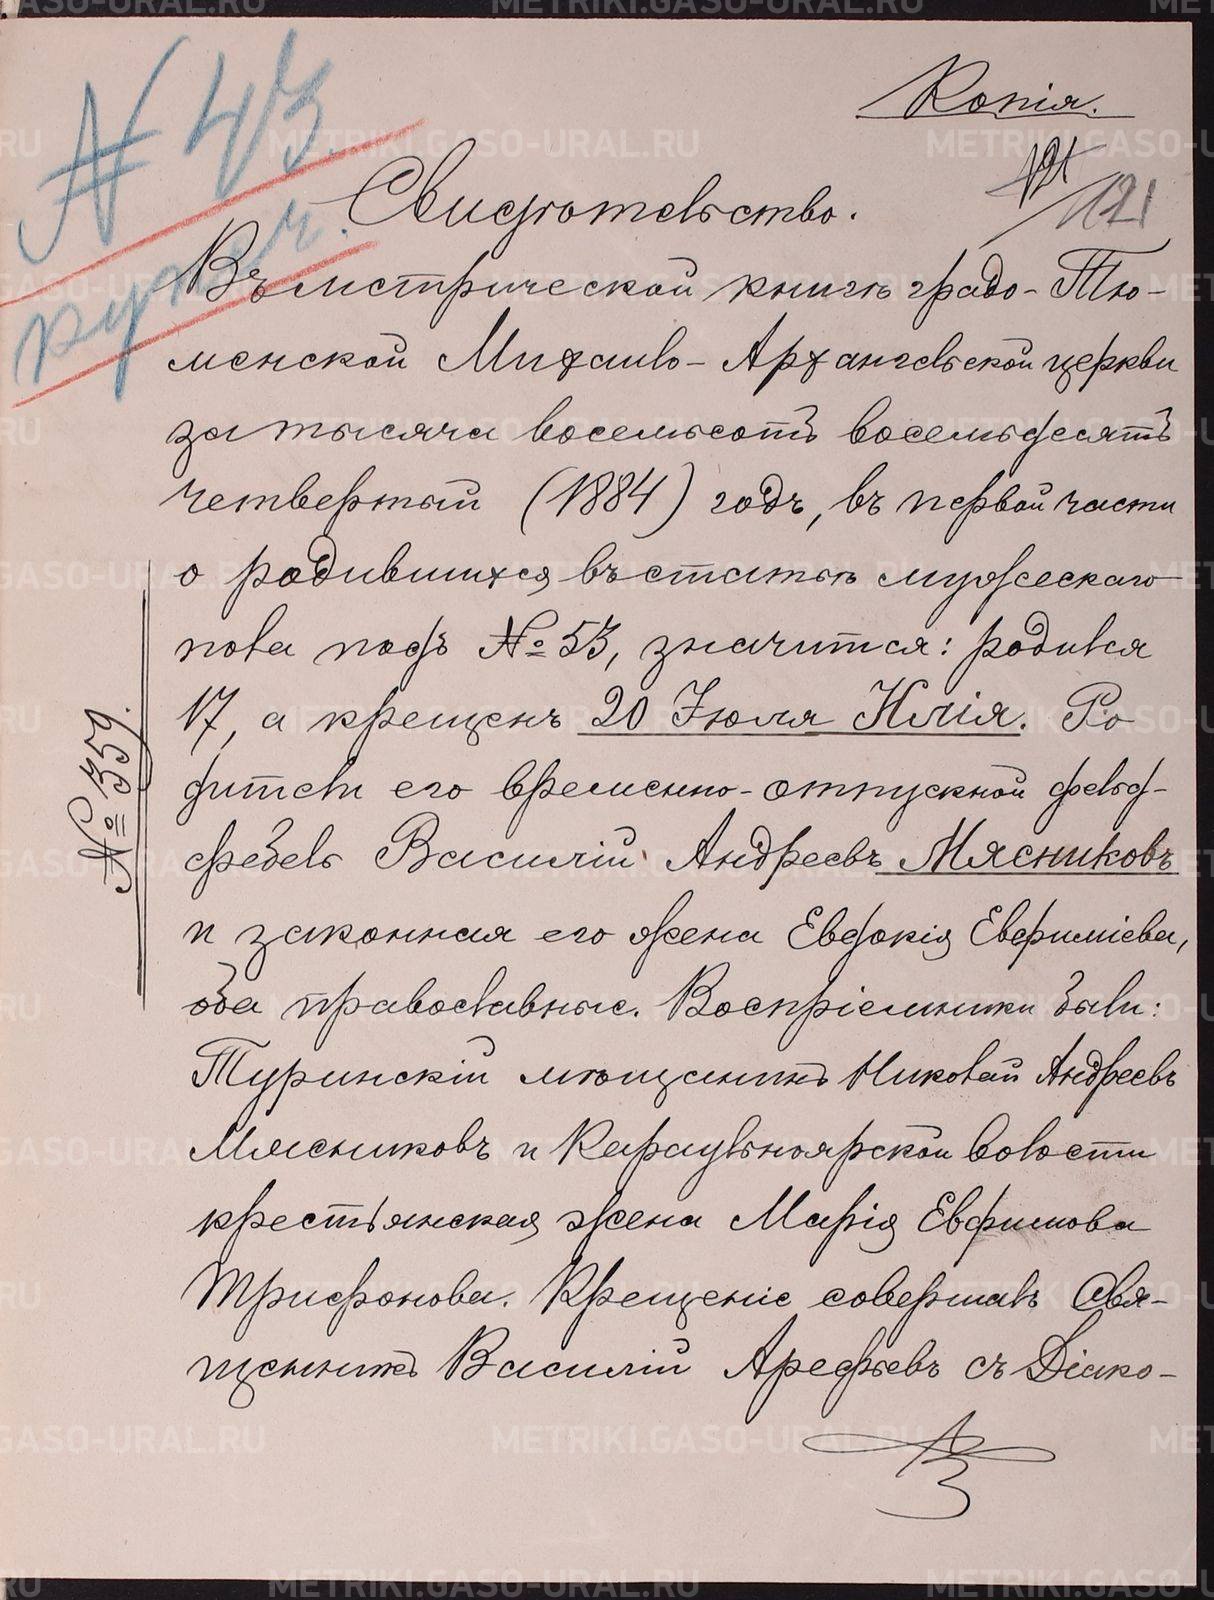 № 43
Копія.
121
121
Свидѣтельство.
Въ метрической книгѣ градо-Тю-
менской Михаило-Архангельской церкви
за тысяча восемьсотъ восемьдесятъ
четвертый (1884) годъ, въ первой части
о родившихся въ статьѣ мужескаго
пола подъ № 53, значится: родился
17, а крещенъ 20 Іюля Илія. Ро-
дители его временно-отпускной фельд-
фебель Василій Андреевъ Мясниковъ
и законная его жена Евдокія Евфиміева,
оба православные. Воспріемники были:
Туринскій мѣщанинъ Николай Андреевъ
Мясниковъ и Караульноярской волости
крестьянская жена Марія Евфимова
Трифонова. Крещеніе совершалъ Свя-
щенникъ Василій Арефьевъ съ Діако-
№ 359.
METRIKI.GASO-URAL.RU